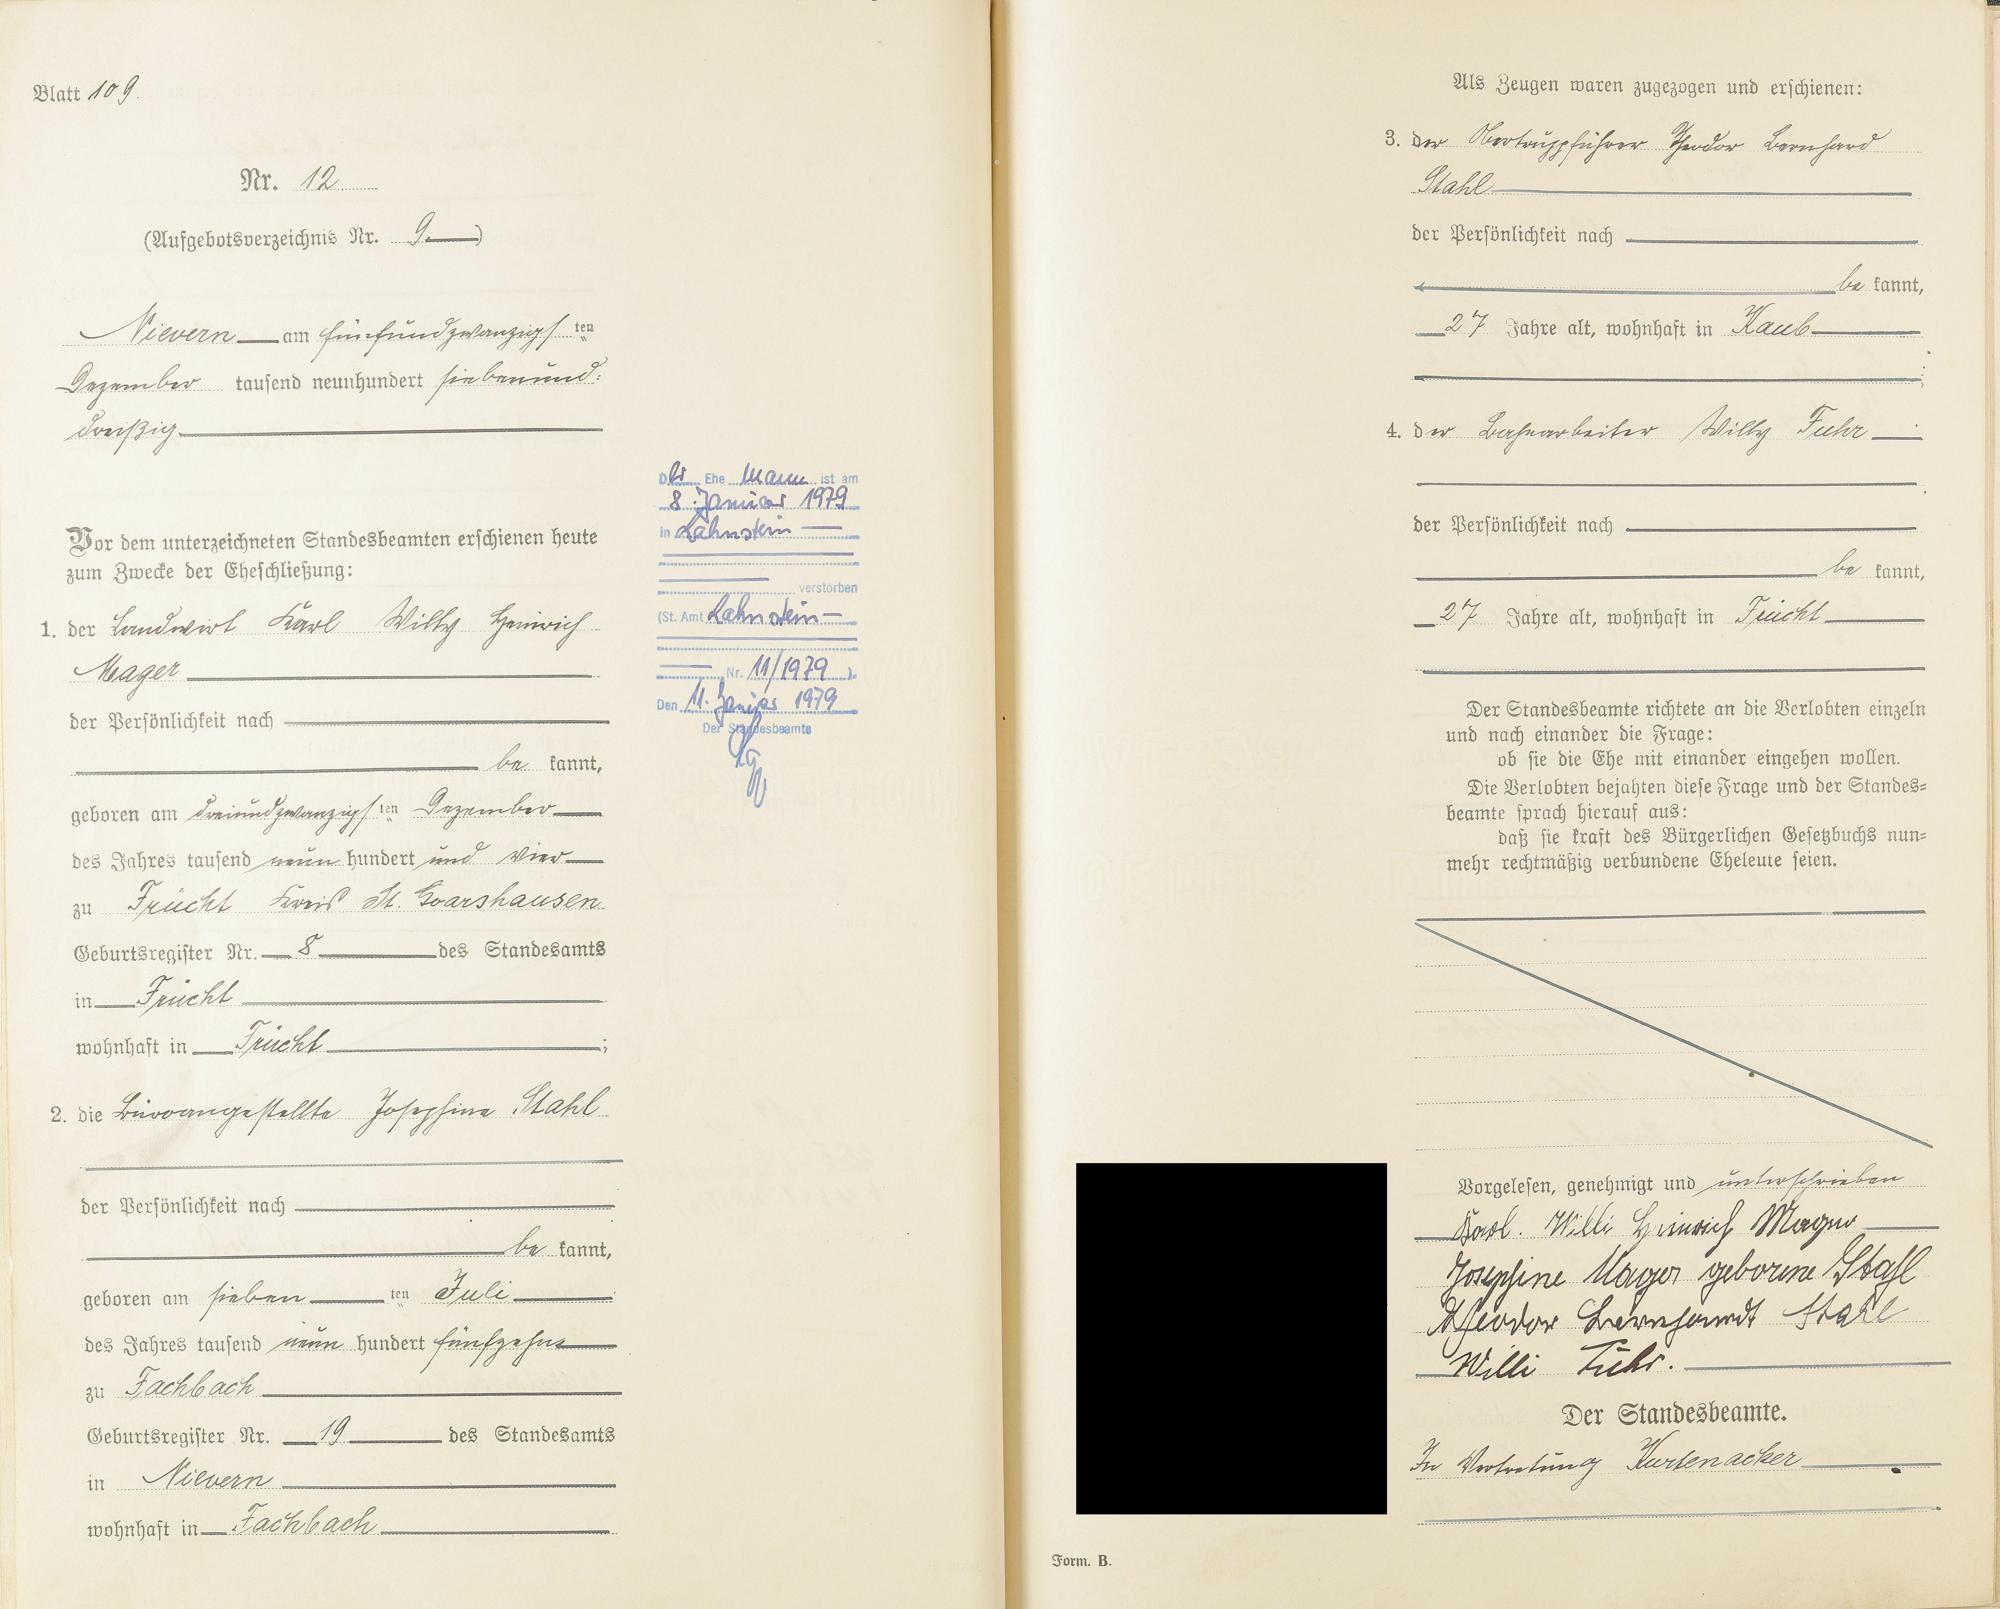 Blatt 109.
Nr. 12
(Aufgebotsverzeichnis Nr. 9.)
Nievern am fünfundzwanzigsten
Dezember tausend neunhundert siebenund-
dreißig
Vor dem unterzeichneten Standesbeamten erschienen heute
zum Zwecke der Eheschließung:
1. der Landwirt Karl Willy Heinrich
Mager
der Persönlichkeit nach
be kannt,
geboren am dreiundzwanzigsten Dezember
des Jahres tausend neun hundert und vier
zu Frücht Kreis St. Goarshausen
Geburtsregister Nr. 8 des Standesamts
in Frücht
wohnhaft in Frücht ;
2. die Büroangestellte Josephine Stahl
der Persönlichkeit nach
be kannt,
geboren am sieben ten Juli
des Jahres tausend neun hundert fünfzehn
zu Fachbach
Geburtsregister Nr. 19 des Standesamts
in Nievern
wohnhaft in Fachbach
Der Ehe Mann ist am
8. Januar 1979
in Lahnstein
verstorben
(St. Amt Lahnstein
Nr. 11/1979 ).
Den 11. Januar 1979
Der Standesbeamte
Als Zeugen waren zugezogen und erschienen:
3. der Obertruppführer Theodor Bernhard
Stahl
der Persönlichkeit nach
be kannt,
27 Jahre alt, wohnhaft in Kaub
;
4. der Bahnarbeiter Willy Fuhr
der Persönlichkeit nach
be kannt,
27 Jahre alt, wohnhaft in Frücht
Der Standesbeamte richtete an die Verlobten einzeln
und nach einander die Frage:
ob sie die Ehe mit einander eingehen wollen.
Die Verlobten bejahten diese Frage und der Standes-
beamte sprach hierauf aus:
daß sie kraft des Bürgerlichen Gesetzbuchs nun-
mehr rechtmäßig verbundene Eheleute seien.
Vorgelesen, genehmigt und unterschrieben
Karl. Willi Heinrich Mager
Josephine Mager geborene Stahl
Theodor Bernhardt Stahl
Willi Fuhr.
Der Standesbeamte.
In Vertretung Kurtenacker
Form. B.